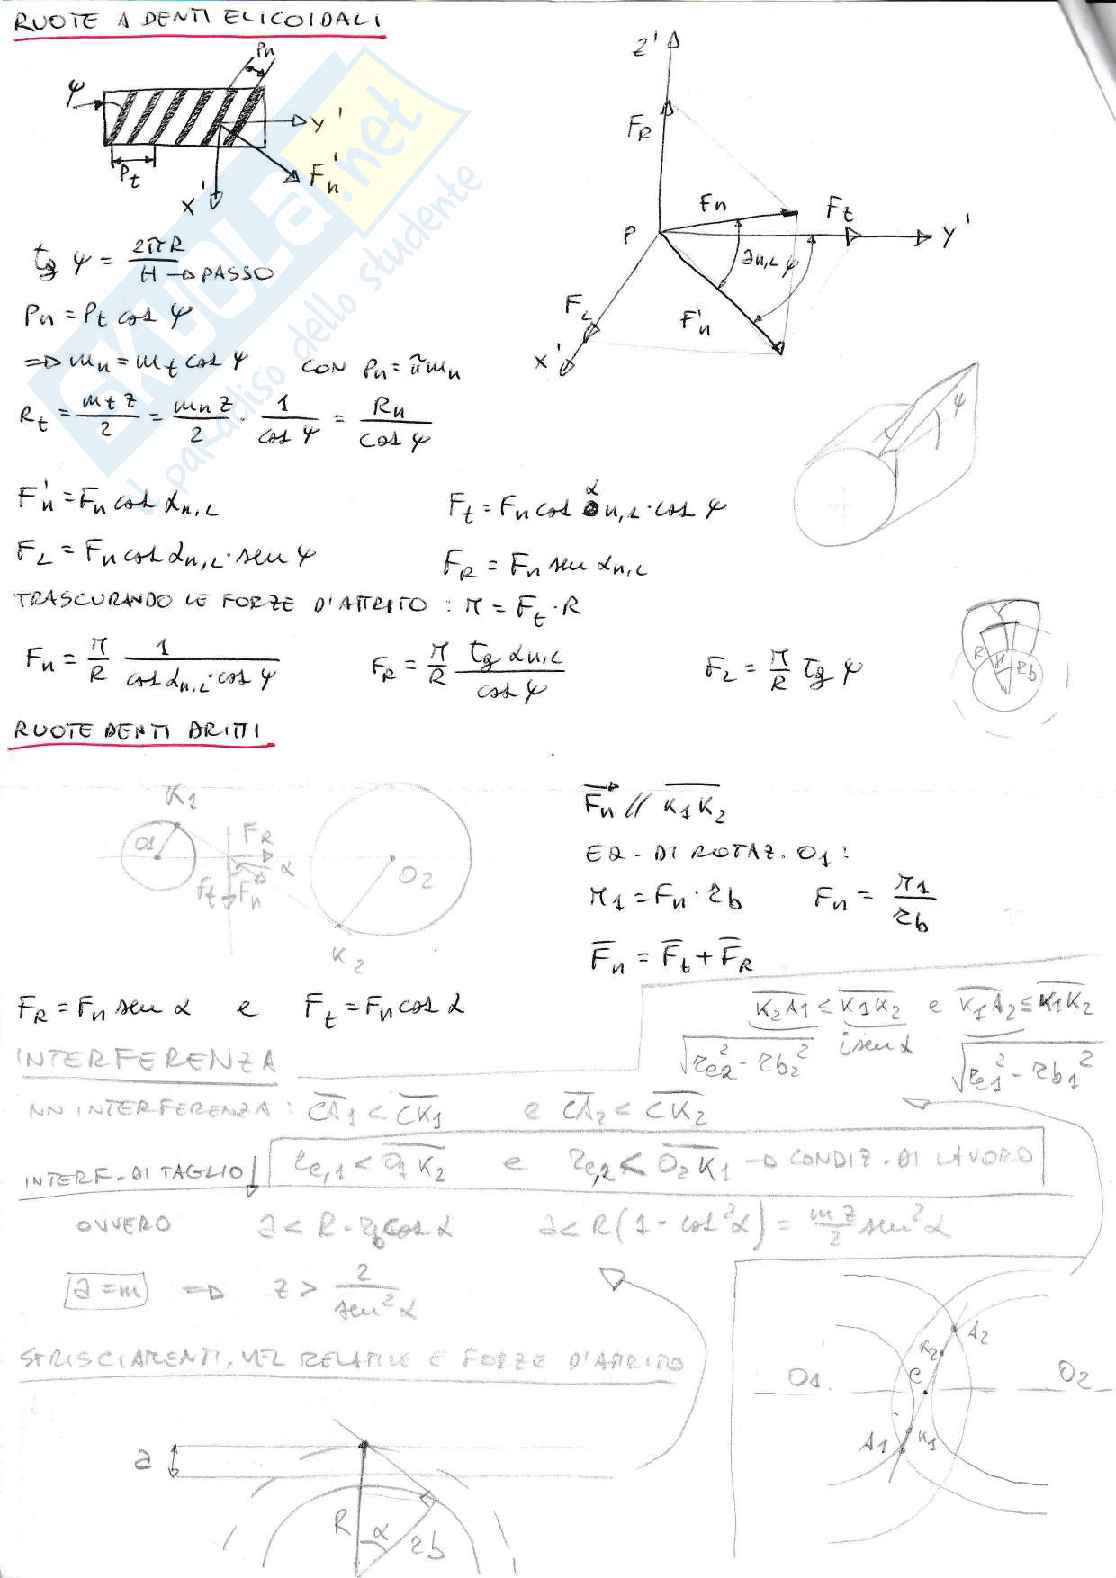 RUOTE A DENTI ELICOIDALI
Pn
ψ
y'
Pt
Fn'
x'
z'
FR
Fn
Ft
P
y'
αn,L ψ
FL
F'n
x'
tg ψ = 2πR / H → PASSO
Pn = Pt cos ψ
=> mn = mt cos ψ CON Pn = πmn
Rt = mt z / 2 = mn z / 2 · 1 / cos ψ = Rn / cos ψ
ψ
F'n = Fn cos αn,L
Ft = Fn cos αn,L · cos ψ
FL = Fn cos αn,L · sen ψ
FR = Fn sen αn,L
TRASCURANDO LE FORZE D'ATTRITO : M = Ft · R
Fn = M/R 1 / cos αn,L · cos ψ
FR = M/R tg αn,L / cos ψ
FL = M/R tg ψ
R
H
rb
RUOTE DENTI DRITTI
K1
O1
FR
α
Ft
Fn
O2
K2
Fn // K1K2
EQ. DI ROTAZ. O1 :
M1 = Fn · rb Fn = M1 / rb
Fn = Ft + FR
FR = Fn sen α e Ft = Fn cos α
K2A1 ≤ K1K2 e K1A2 ≤ K1K2
√re2² - rb2² i sen α √re1² - rb1²
INTERFERENZA
NN INTERFERENZA : CA1 < CK1 e CA2 < CK2
INTERF. DI TAGLIO ↓ re,1 < O1K2 e re,2 < O2K1 → CONDIZ. DI LAVORO
OVVERO a < R - rb cos α a < R(1 - cos²α) = mz/2 sen²α
a = m => z > 2 / sen² α
STRISCIAMENTI, VEL RELATIVE E FORZE D'ATTRITO
A2
K2
C
O1
O2
A1
K1
a
R
α
rb
SKUOLA.net
il paradiso dello studente